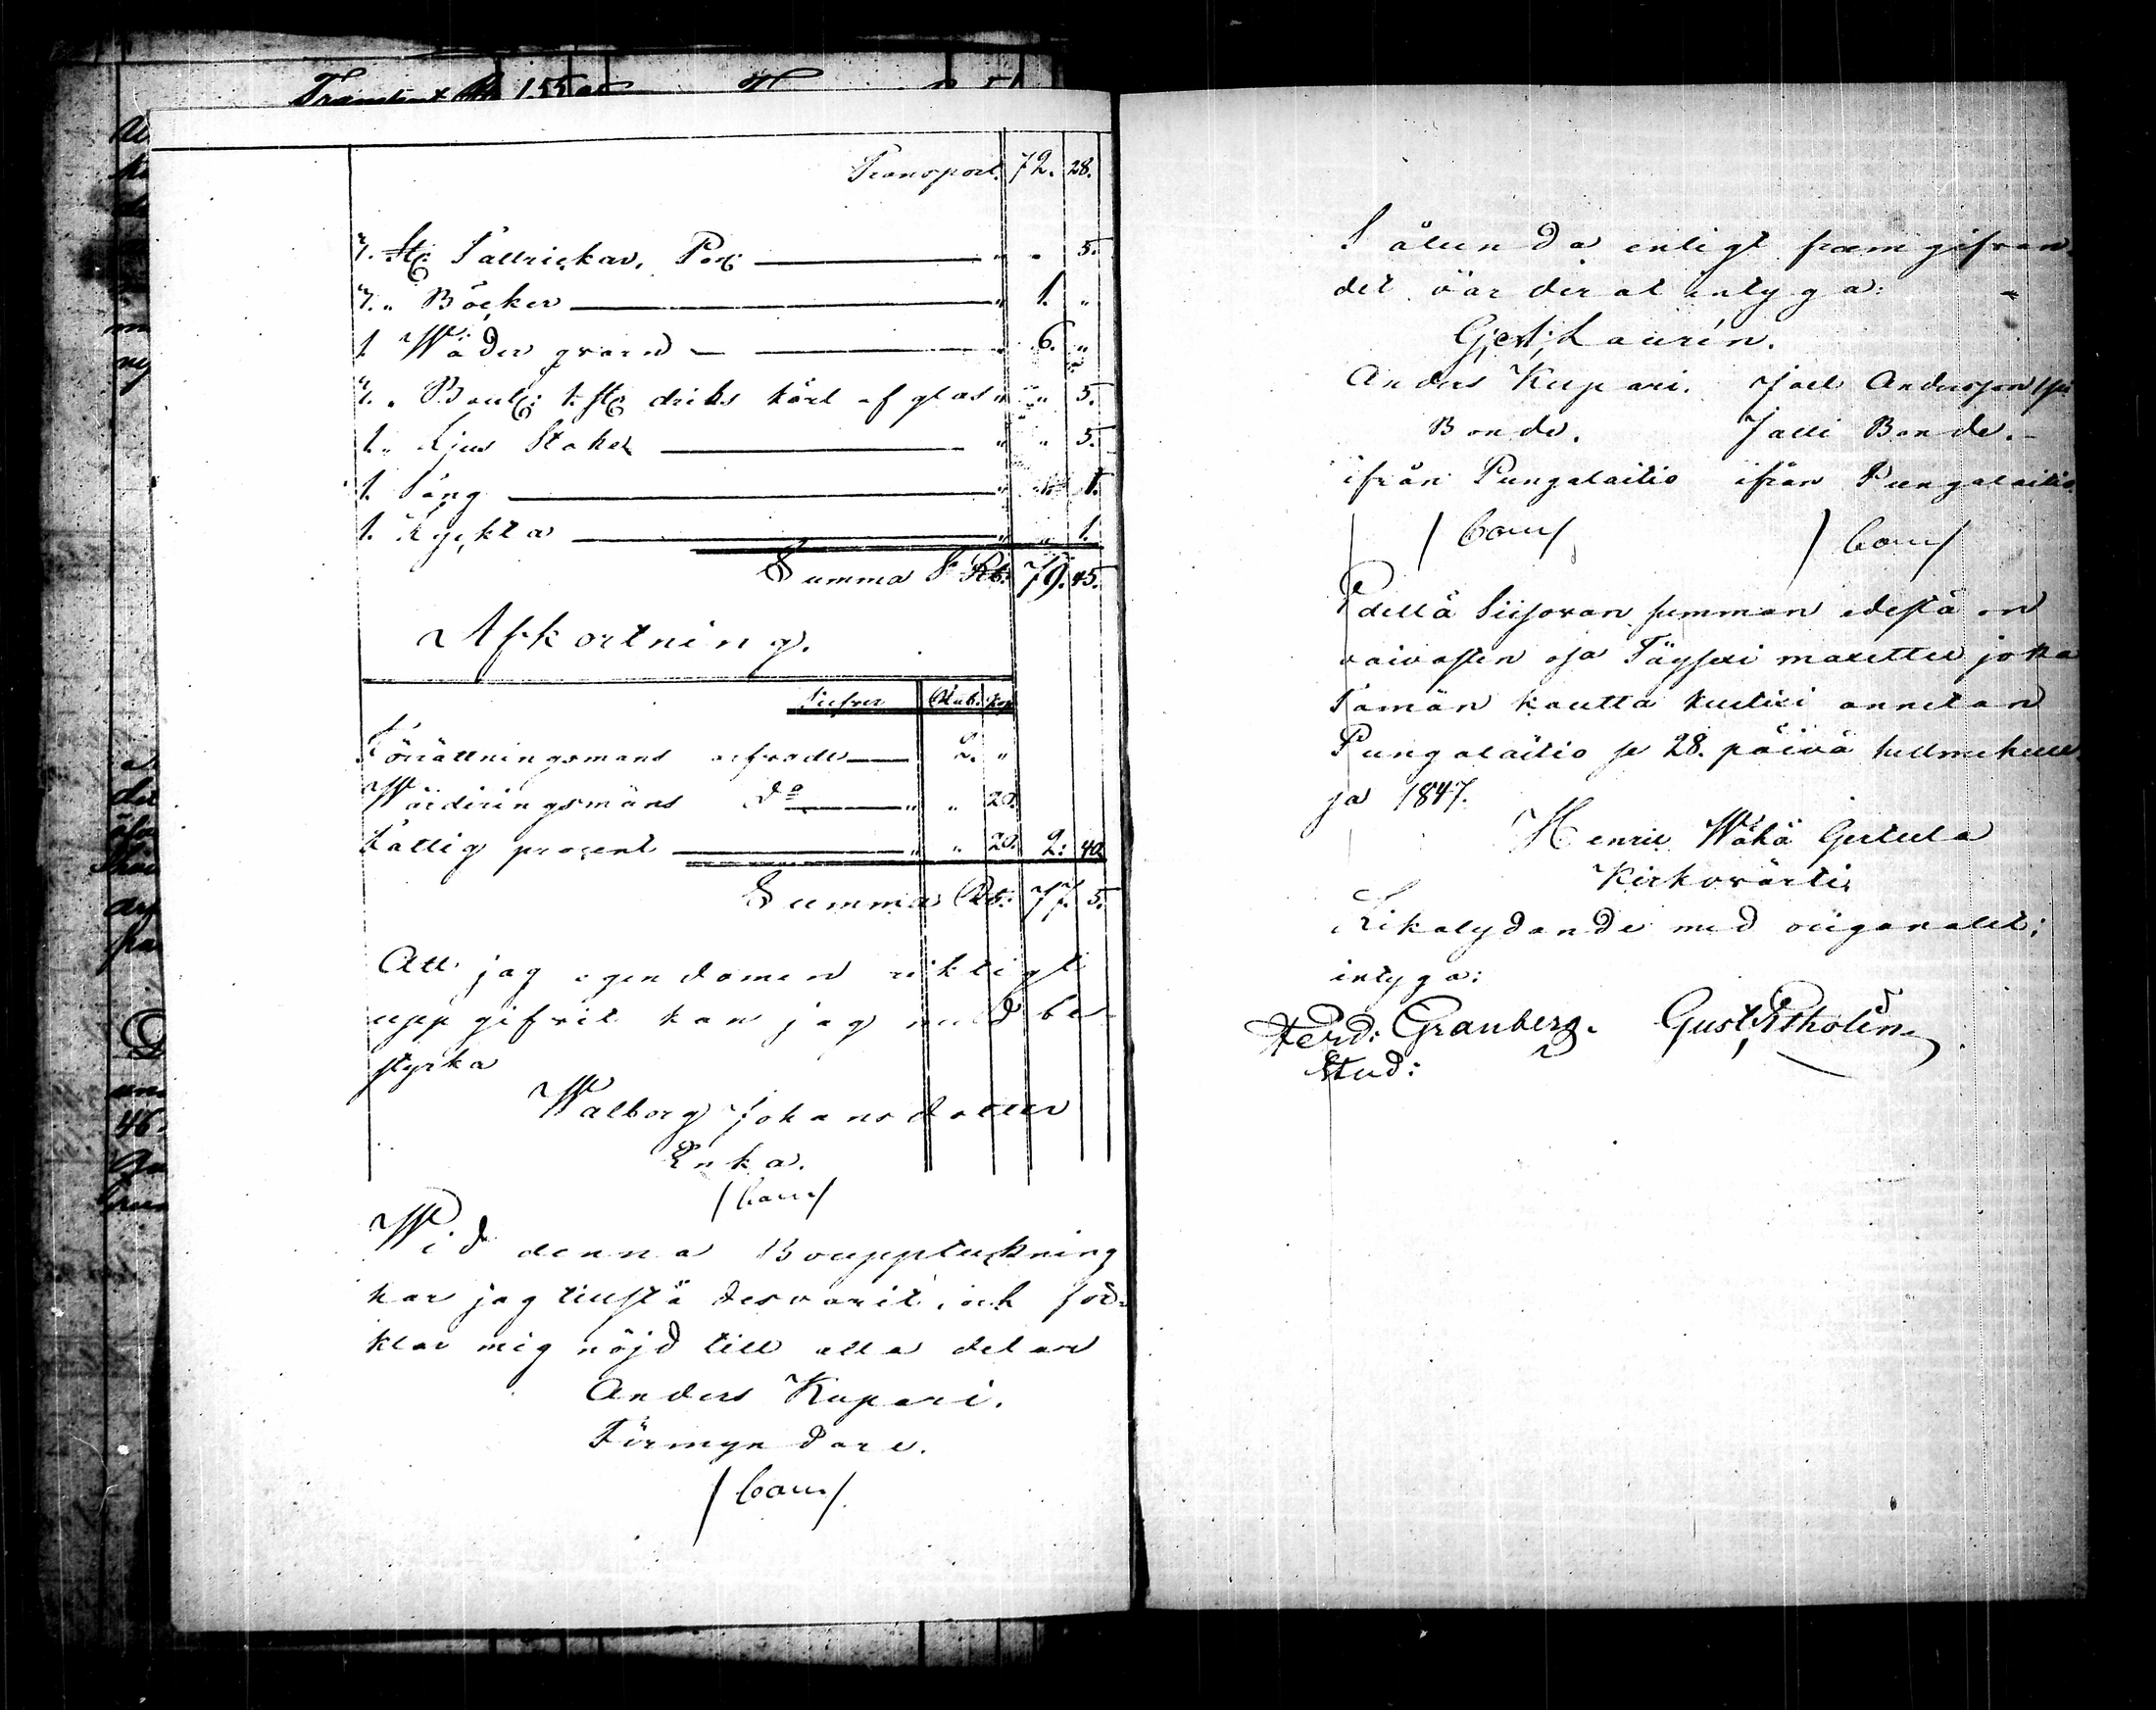 Transport. 72. 28.
7. St: Tallrickar, Por: " " 5.
7. " Böcker " 1. "
1 Wäder qvarn " 6. "
1. " Bout: 1 st: driks kärl af glas " " 5.
1. " Ljus Stake " " 5.
1. Säng " " 1.
1. Kyckta " " 1.
Summa S Rb: 79. 45.
Afkortning.
Silfver Rub. kop
Förrättningsmans arfvode 2. "
Wärderingsmäns do " " 20.
Fattig procent " " 20. 2: 40
Summa Rb: 77. 5.
Att jag egendomen riktigt
uppgifvit kan jag med be-
styrka
Walborg Johansdotter
Enka.
/bom/
Wid denna Bouppteckning
har jag tillstädesvarit, och för-
klar mig nöjd till alla delar
Anders Kupari.
Förmyndare.
/bom/
Sålunda enligt framgifvan-
det vär derat intyga:
Gust: Laurén.
Anders Kupari. Joel Andersson
Bonde. Jalli Bonde.
ifrån Pungalaitio ifrån Pungalaitio
/bom/ /bom/
Edellä Seisovan summan edestä on
vaivasten osa Täyseri maxettu joka
Tämän kautta kuitixi annetan
Pungalaitio se 28. päivä hellmikuu
ja 1847.
Henric Wähä Gertula
Kirkovärti
Likalydande med origenalet;
intyga:
Ferd: Granberg. Gust: Etholén
Stud: